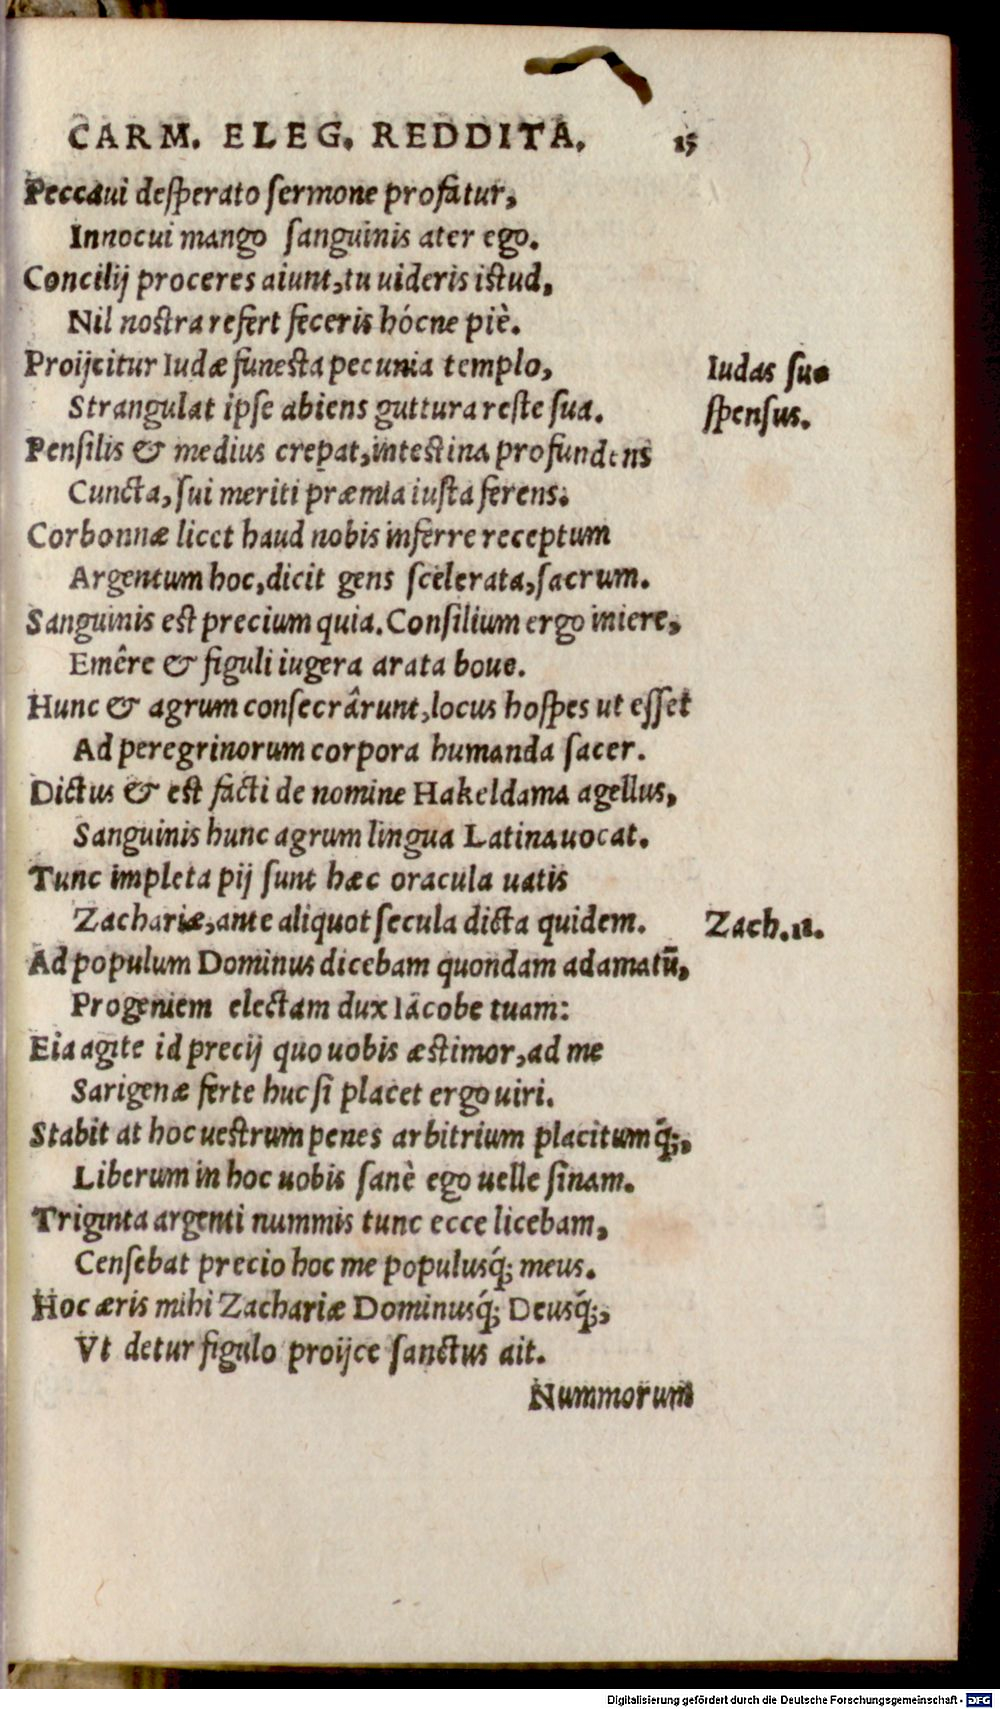 CARM. ELEG. REDDITA. 15
Peccaui desperato sermone profatur,
Innocui mango sanguinis ater ego.
Concilij proceres aiunt, tu uideris istud,
Nil nostra refert feceris hócne piè.
Proijcitur Iudæ funesta pecunia templo,
Iudas su-
Strangulat ipse abiens guttura reste sua.
spensus.
Pensilis & medius crepat, intestina profundens
Cuncta, sui meriti præmia iusta ferens.
Corbonnæ licet haud nobis inferre receptum
Argentum hoc, dicit gens scelerata, sacrum.
Sanguinis est precium quia. Consilium ergo iniere,
Emêre & figuli iugera arata boue.
Hunc & agrum consecrârunt, locus hospes ut esset
Ad peregrinorum corpora humanda sacer.
Dictus & est facti de nomine Hakeldama agellus,
Sanguinis hunc agrum lingua Latina uocat.
Tunc impleta pij sunt hæc oracula uatis
Zachariæ, ante aliquot secula dicta quidem.
Zach. 11.
Ad populum Dominus dicebam quondam adamatū,
Progeniem electam dux Iacobe tuam:
Eia agite id precij quo uobis æstimor, ad me
Sarigenæ ferte huc si placet ergo uiri.
Stabit at hoc uestrum penes arbitrium placitumq́;,
Liberum in hoc uobis sanè ego uelle sinam.
Triginta argenti nummis tunc ecce licebam,
Censebat precio hoc me populusq́; meus.
Hoc æris mihi Zachariæ Dominusq́; Deusq́;,
Vt detur figulo proijce sanctus ait.
Nummorum
Digitalisierung gefördert durch die Deutsche Forschungsgemeinschaft - DFG